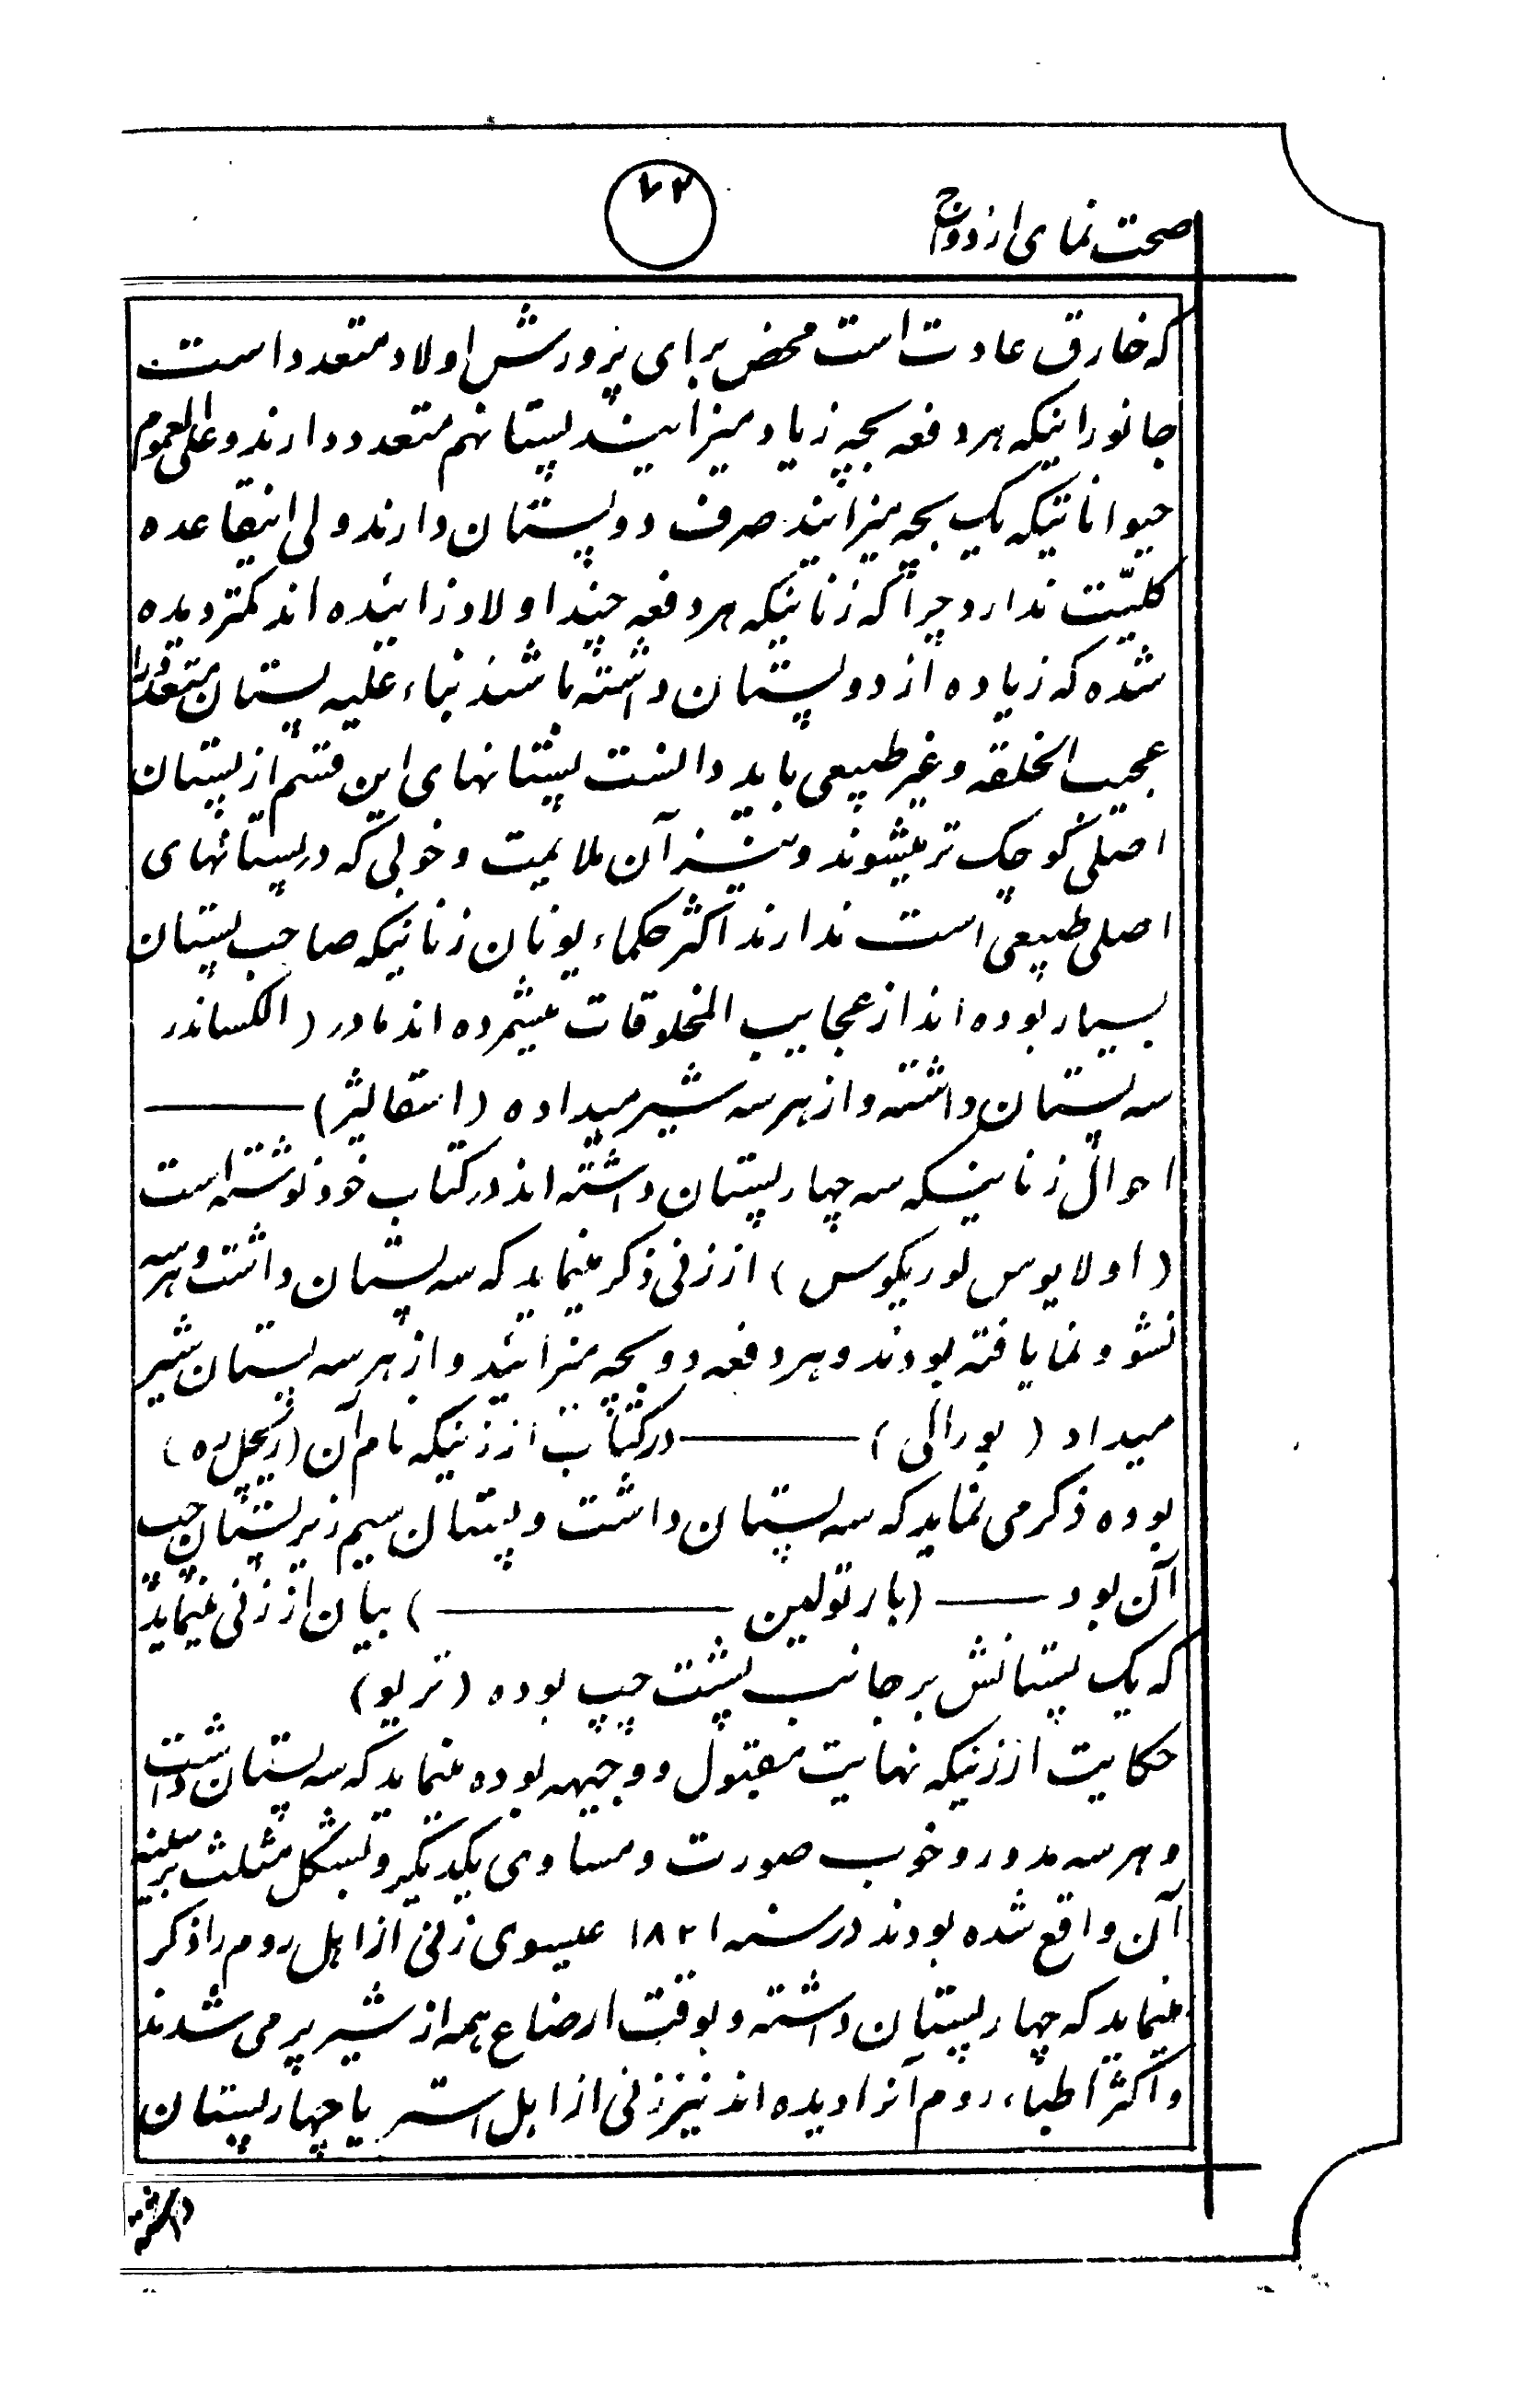 صحت نمای ازدواج
۷۲
که خارق عادت است محض برای پرورش اولاد متعدد است
جانورانیکه هر دفعه بچه زیاد میزایند پستانهم متعدد دارند و علی العموم
حیواناتیکه یک بچه میزایند صرف دو پستان دارند ولی اینقاعده
کلیّت ندارد چرا که زنانیکه هر دفعه چند اولاد زائیده اند کمتر دیده
شده که زیاده از دو پستان داشته باشند بناء علیه پستان متعدد را
عجیب الخلقه و غیر طبیعی باید دانست پستانهای این قسم از پستان
اصلی کوچک تر میشوند و نیز آن ملایمیت و خوبی که در پستانهای
اصلی طبیعی است ندارند اکثر حکماء یونان زنانیکه صاحب پستان
بسیار بوده اند از عجایب المخلوقات میشمرده اند مادر (الکساندر
سه پستان داشته و از هر سه شیر میداده (انتقالیژ) ———
احوال زنانیکه سه چهار پستان داشته اند در کتاب خود نوشته است
(اولایوس لوریکوس) از زنی ذکر مینماید که سه پستان داشت و هر سه
نشو و نما یافته بودند و هر دفعه دو بچه میزائید و از هر سه پستان شیر
میداد (بورالی) ——— در کتاب از زنیکه نام آن (ریچل ره)
بوده ذکر می نماید که سه پستان داشت و پستان سیم زیر پستان چپ
آن بود —— (بارتولین ———) بیان از زنی مینماید
که یک پستانش بر جانب پشت چپ بوده (تریو)
حکایت از زنیکه نهایت مقبول و وجیهه بوده مینماید که سه پستان داشت
و هر سه مدور و خوب صورت و مساوی یکدیگر و بشکل مثلث بر سینه
آن واقع شده بودند در سنه ۱۸۲۱ عیسوی زنی از اهل روم را ذکر
مینماید که چهار پستان داشته و بوقت ارضاع همه از شیر پر می شدند
و اکثر اطباء روم آنرا دیده اند نیز زنی از اهل استریا چهار پستان
داشته